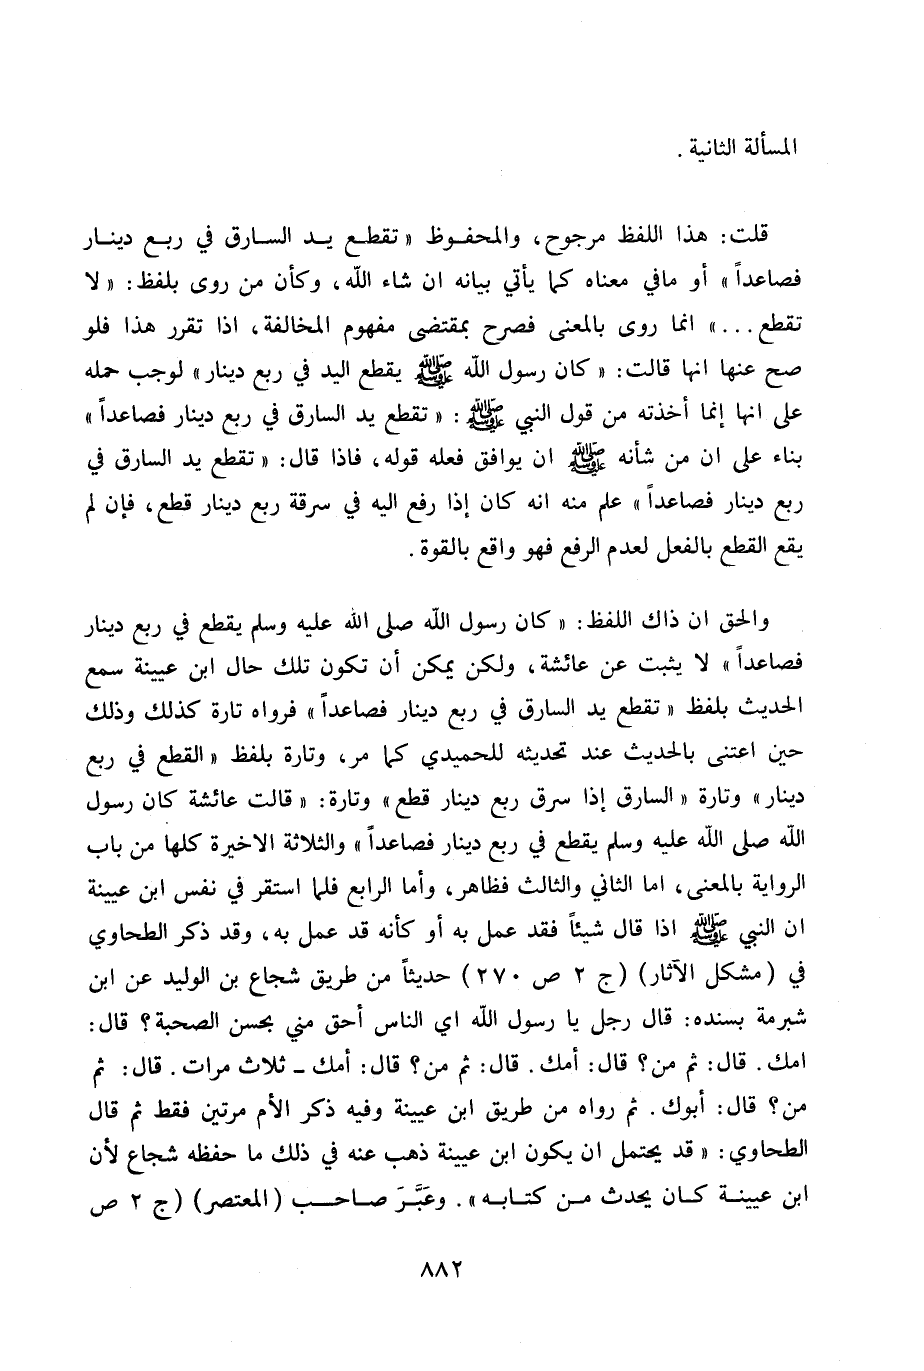 المسألة الثانية .
قلت: هذا اللفظ مرجوح، والمحفوظ « تقطع يد السارق في ربع دينار
فصاعداً » أو مافي معناه كما يأتي بيانه ان شاء الله، وكأن من روى بلفظ: « لا
تقطع... » انما روى بالمعنى فصرح بمقتضى مفهوم المخالفة، اذا تقرر هذا فلو
صح عنها انها قالت: « كان رسول الله ﷺ يقطع اليد في ربع دينار » لوجب حمله
على انها إنما أخذته من قول النبي ﷺ : « تقطع يد السارق في ربع دينار فصاعداً »
بناء على ان من شأنه ﷺ ان يوافق فعله قوله، فاذا قال: « تقطع يد السارق في
ربع دينار فصاعداً » علم منه انه كان إذا رفع اليه في سرقة ربع دينار قطع، فإن لم
يقع القطع بالفعل لعدم الرفع فهو واقع بالقوة .
والحق ان ذاك اللفظ: « كان رسول الله صلى الله عليه وسلم يقطع في ربع دينار
فصاعداً » لا يثبت عن عائشة، ولكن يمكن أن تكون تلك حال ابن عيينة سمع
الحديث بلفظ « تقطع يد السارق في ربع دينار فصاعداً » فرواه تارة كذلك وذلك
حين اعتنى بالحديث عند تحديثه للحميدي كما مر، وتارة بلفظ « القطع في ربع
دينار » وتارة « السارق إذا سرق ربع دينار قطع » وتارة: « قالت عائشة كان رسول
الله صلى الله عليه وسلم يقطع في ربع دينار فصاعداً » والثلاثة الاخيرة كلها من باب
الرواية بالمعنى، اما الثاني والثالث فظاهر، وأما الرابع فلما استقر في نفس ابن عيينة
ان النبي ﷺ اذا قال شيئاً فقد عمل به أو كأنه قد عمل به، وقد ذكر الطحاوي
في (مشكل الآثار) (ج ٢ ص ٢٧٠) حديثاً من طريق شجاع بن الوليد عن ابن
شبرمة بسنده: قال رجل يا رسول الله اي الناس أحق مني بحسن الصحبة؟ قال:
امك. قال: ثم من؟ قال: أمك. قال: ثم من؟ قال: أمك ـ ثلاث مرات. قال: ثم
من؟ قال: أبوك. ثم رواه من طريق ابن عيينة وفيه ذكر الأم مرتين فقط ثم قال
الطحاوي: « قد يحتمل ان يكون ابن عيينة ذهب عنه في ذلك ما حفظه شجاع لأن
ابن عيينة كان يحدث من كتابه ». وعَبَّرَ صاحب (المعتصر) (ج ٢ ص
٨٨٢